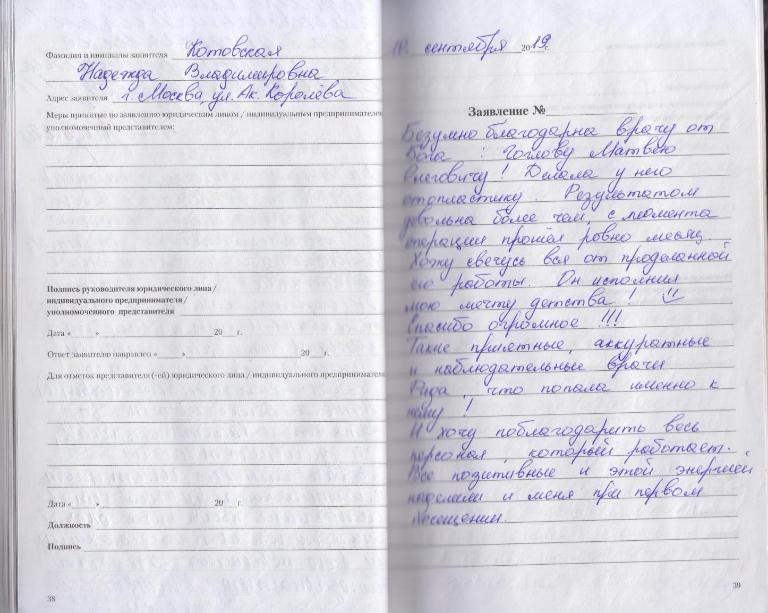 Фамилия и инициалы заявителя Котовская
Надежда Владимировна
Адрес заявителя г. Москва, ул. Ак. Королёва
Меры принятые по заявлению юридическим лицом / индивидуальным предпринимателем
уполномоченный представителем:
Подпись руководителя юридического лица /
индивидуального предпринимателя /
уполномоченного представителя
Дата «____» 20__ г.
Ответ заявителю направлен «____» 20__ г.
Для отметок представителя (-ей) юридического лица / индивидуального предпринимателя
Дата «____» 20__ г.
Должность
Подпись
38
сентября 2019 г.
Заявление №
Безумно благодарна врачу от
Бога : Гоглову Матвею
Олеговичу! Делала у него
отопластику. Результатом
довольна более чем, с момента
операции прошёл ровно месяц.
Хожу свечусь вся от проделанной
его работы. Он исполнил
мою мечту детства!
Спасибо огромное !!!
Такие приятные, аккуратные
и наблюдательные врачи
Рада, что попала именно к
нему!
И хочу поблагодарить весь
персонал, который работает.
Все позитивные и этой энергией
поделили и меня при первом
посещении.
39